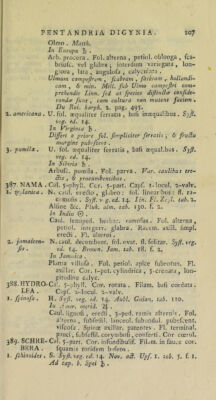 PENTANDRIA DIGYNIA. 207
Olmo. Matth.
In Europa ♄.
Arb. procera. Fol. alterna, petiol. oblonga, sca-
briusc. vel glabra, interdum variegata, lon-
giora, lata, angulosa, calyculata.
Ulmum campestrem, scabram, hollandi-
cam, & min. Mill. sub Ulmo campestri com-
prehendit Linn. sed ut species distinctae conside-
randae sunt, cum cultura non mutent faciem.
Du Roi. harpk. 2. pag. 495.
2. americana. U. fol. aequaliter serratis, basi inaequalibus. Syst.
veg. ed. 14.
In Virginia ♄.
Differt a priore fol. simpliciter serratis; & fructu
margine pubescente.
3. pumila. U. fol. aequaliter serratis, basi aequalibus. Syst.
veg. ed. 14.
In Sibiria ♄.
Arbusc. pumila. Fol. parva. Var. caulibus erec-
tis, & procumbentibus.
387. NAMA. Cal. 5-phyll. Cor. 5-part. Caps. 1-locul. 2-valv.
1. zylanica. N. caul. erecto, glabro; fol. linearibus
Syst. v. g. ed. 14. Linn. Fl. Zeyl. tab. 2.
Alsine &c. Pluk. alm. tab. 130. f. 2.
In India ⊙.
Caul. semiped. herbac. ramosus. Fol. alterna,
petiol. integerr. glabra. Racem. axill. simpl.
erecti. Fl. alterni.
2. jamaicen-
sis. N. caul. decumbente, fol. ovat. fl. solitar. Syst. veg.
ed. 14. Brown. Jam. tab. 18. f. 2.
In Jamaica.
Planta villosa. Fol. petiol. apice subrotunda. Fl.
axillar. Cor. 1-pet. cylindrica, 5-crenata, lon-
gitudine calyc.
388. HYDRO-
LEA. Cal. 5-phyll. Cor. rotata. Filam. basi cordata.
Caps. 2-locul. 2-valv.
1. spinosa. H. Syst. veg. ed. 14. Aubl. Guian. tab. 110.
In Amer. merid. ♃.
Caul. lignosi, erecti, 3-ped. ramis alternis. Fol.
alterna, subsessil. lanceol. subundul. pubescent.
viscosa. Spinae axillar. patentes. Fl. terminal.
panic. subsessil. corymbosi, conferti. Cor. coerul.
389. SCHRE-
BERA. Cal. 5-part. Cor. infundibulif. Filam. in fauce cor.
squamis instructam.
1. schinoides. S. Syst. veg. ed. 14. Nov. act. Ups. t. 1. tab. 5. f. 1.
Ad cap. b. spei ♄.